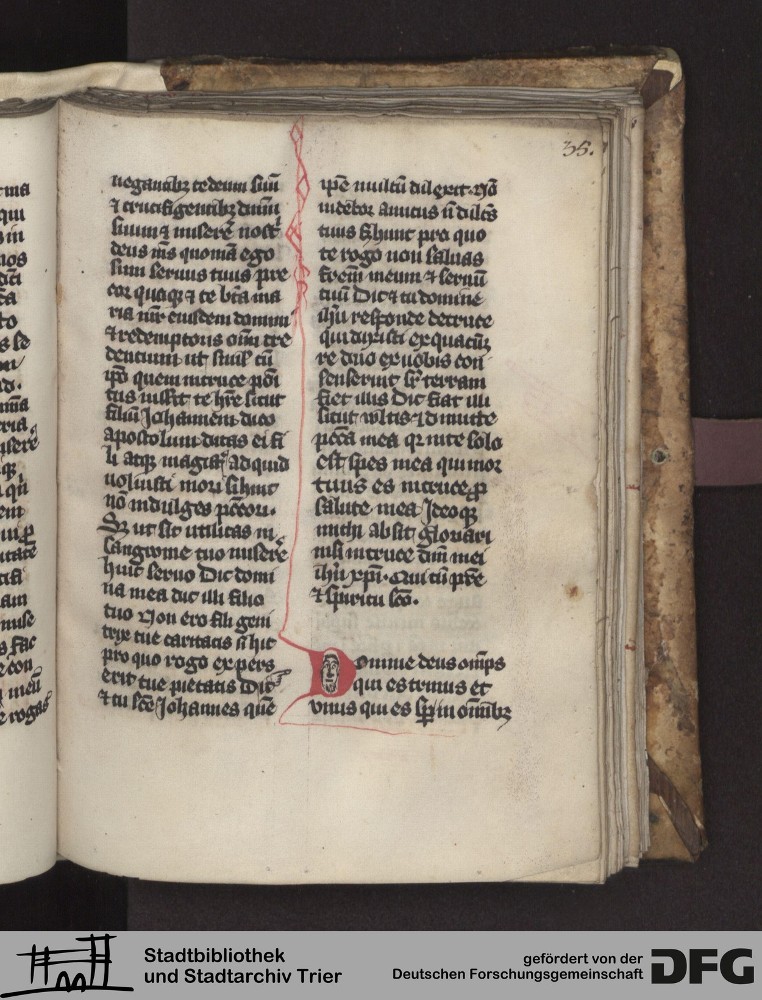 35.
negantibꝫ te deum suū
⁊ crucifigentibꝫ dnm̄
suum ⁊ miserē nost͛
deus mīs quoniā ego
sum seruus tuus pre
cor quoqꝫ ⁊ te btā ma
ria mr̄ eiusdem domini
⁊ redemptoris oīm cre
dentium ut simĺ cū
ip̄o quem in cruce pōi
tus iussit te hr̄e sicut
filiū Johannem duco
apostolum dicas ei fi
li atqꝫ magr̄ ad quid
uoluisti mori si hinc
nō indulges pctōri.
Sꝫ ut sit utilitas in
sanguine tuo miserē
huic seruo Dic domi
na mea dic illi filio
tuo Non ero fili geni
trix tue caritatis si hic
pro quo rogo expers
erit tue pietatis Dic
⁊ tu scē Johannes quē
ip̄e multū dilexit Nō
uidebor amicus ū dilcs̄
tuus si hunc pro quo
te rogo non saluas
frēm meum ⁊ seruū
tuū Dic ⁊ tu domine
ih̄u responde de cruce
qui dixisti ex quacūqꝫ
re duo ex uobis con
senserint sr̄ terram
fiet illis Dic fiat illi
sicut vĺtis ⁊ dimitte
pctā mea qꝛ in te solo
est spes mea qui mor
tuus es in cruce ꝓ
salute mea Ideoqꝫ
michi absit gloriari
nisi in cruce dn̄i mei
ih̄u xp̄i. Qui cū pr̄e
⁊ spiritu scō.
Domine deus om̄ps
qui es trinus et
vnus qui es sp̄ in om̄ibꝫ
ma
qui
in
nos
to
se
am
fac
con
meū
rogas
Stadtbibliothek
und Stadtarchiv Trier
gefördert von der
Deutschen Forschungsgemeinschaft
DFG